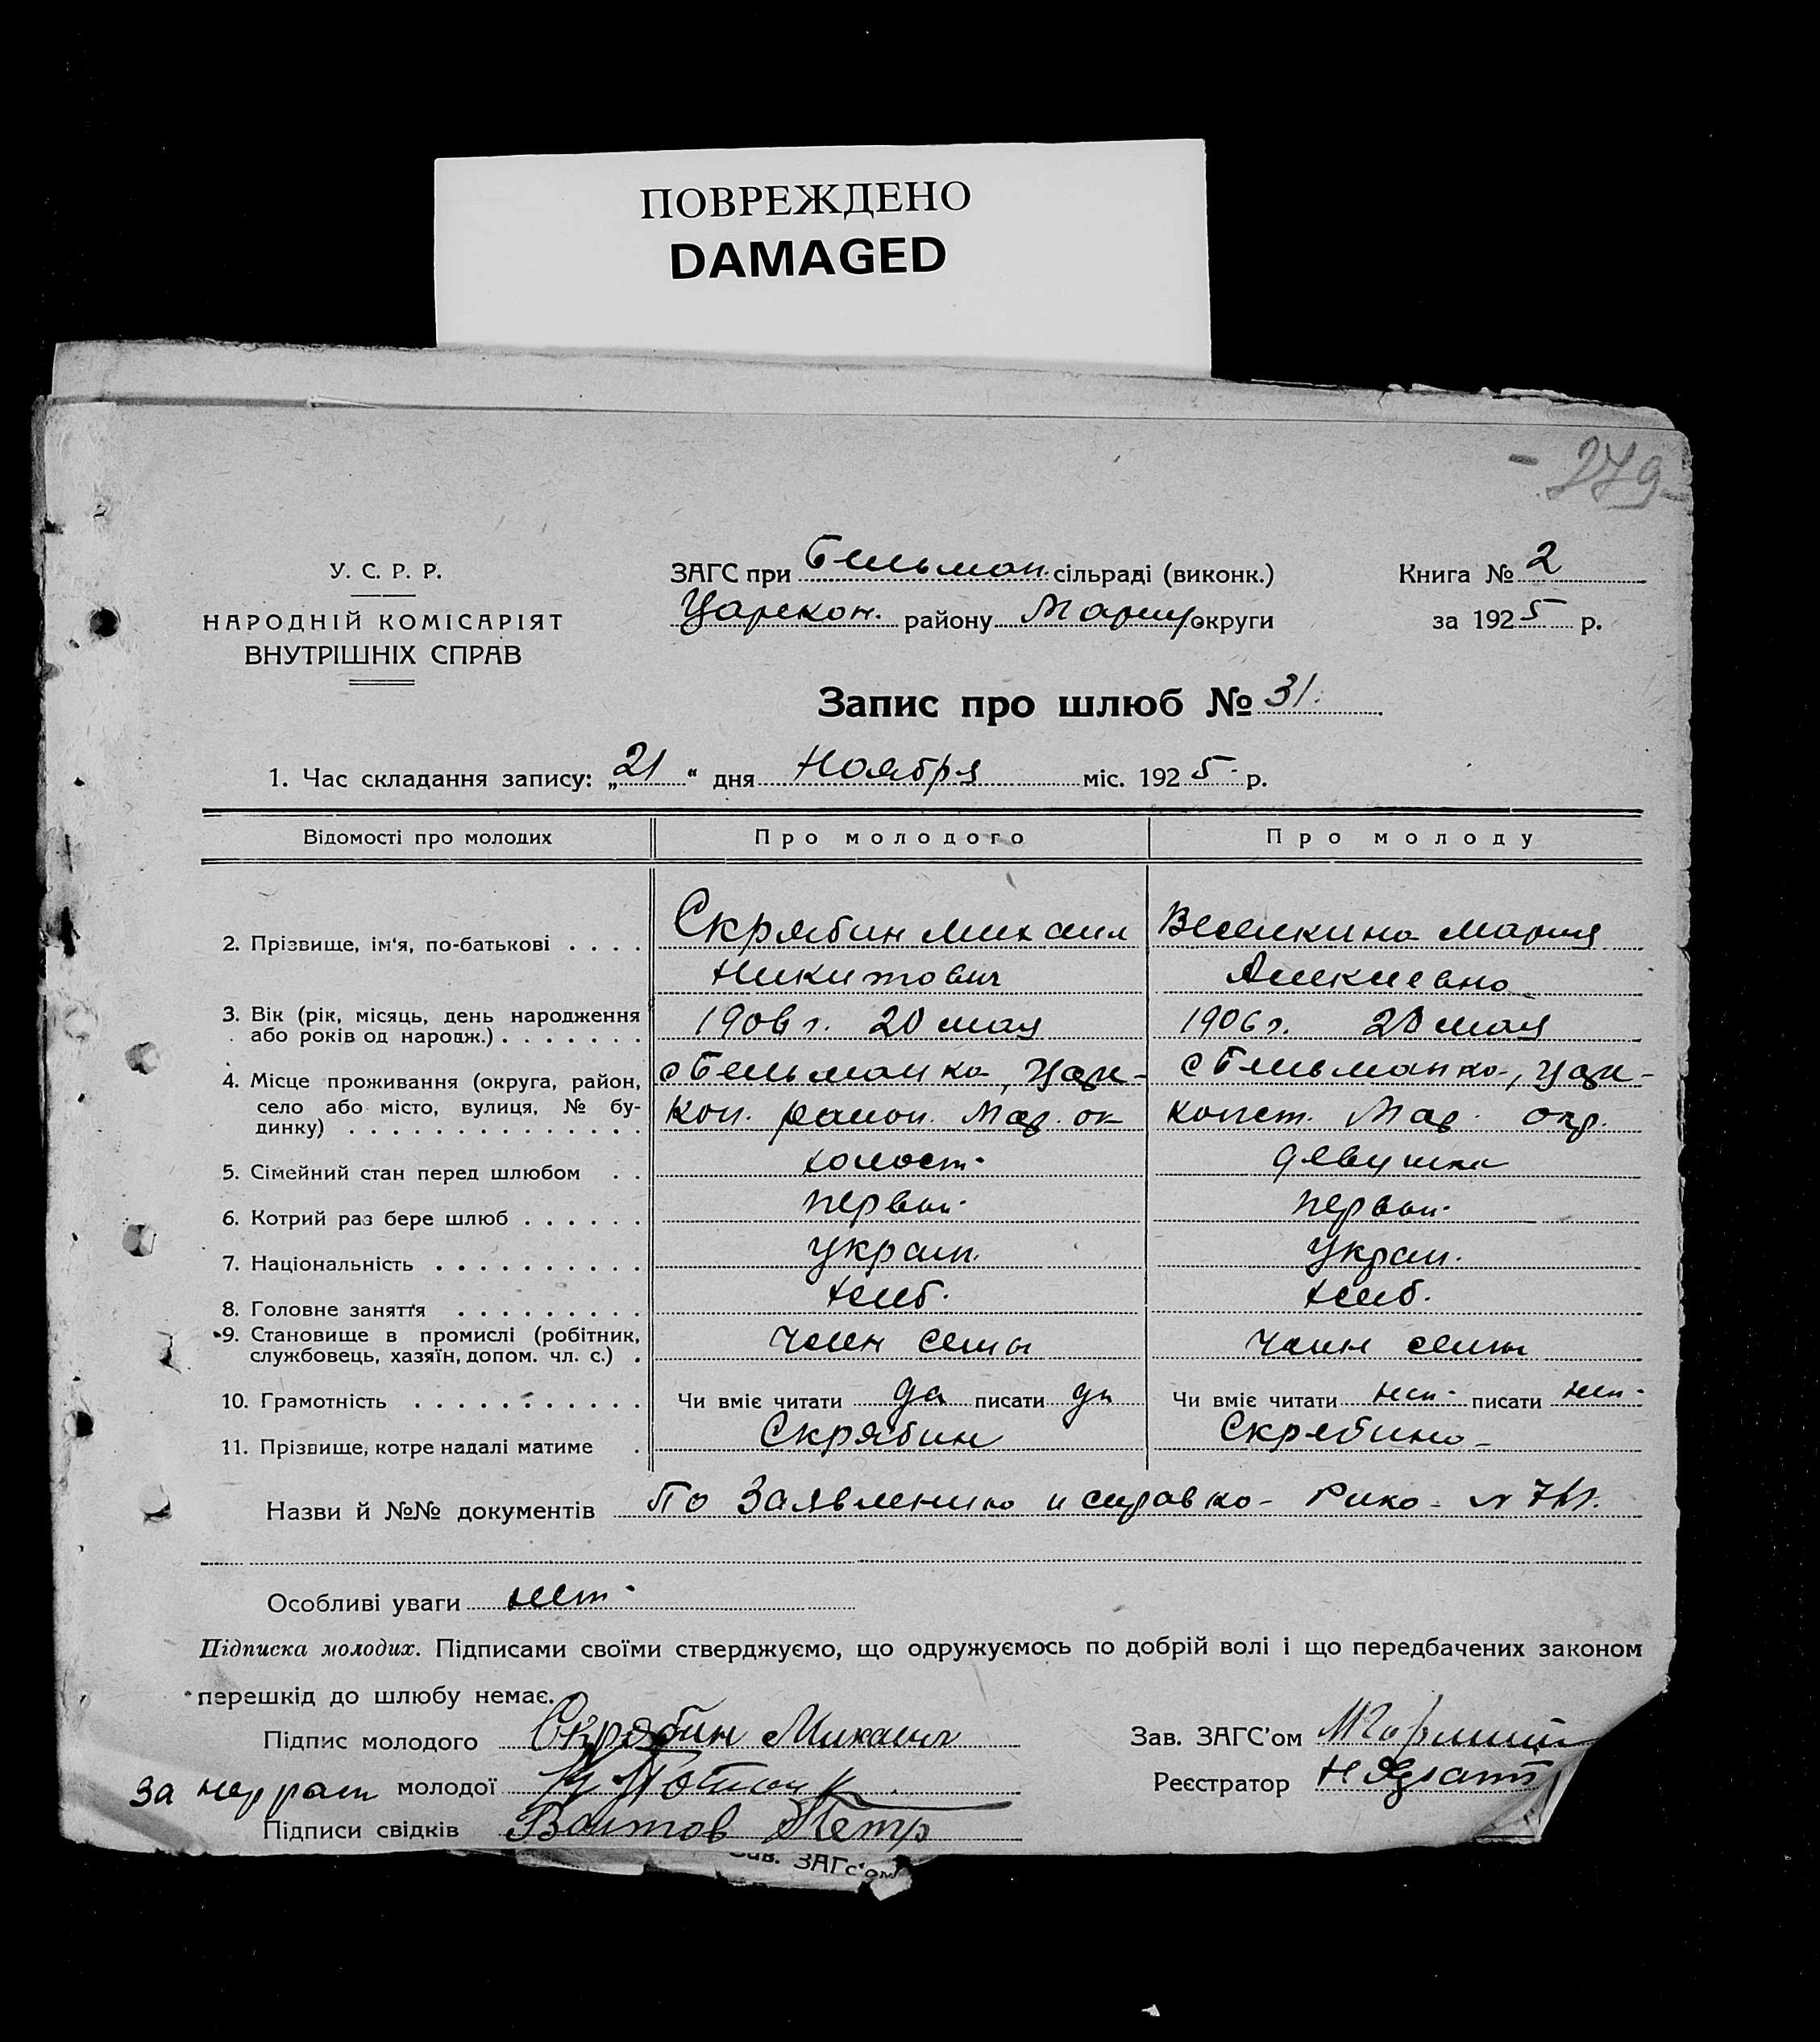 ПОВРЕЖДЕНО
DAMAGED
- 279 -
У. С. Р. Р.
НАРОДНІЙ КОМІСАРІЯТ
ВНУТРІШНІХ СПРАВ
ЗАГС при Бельман. сільраді (виконк.)
Царекон. району Мариу округи
Книга № 2
за 1925 р.
Запис про шлюб № 31.
1. Час складання запису: „21“ дня Ноября міс. 1925 р.
Відомості про молодих
Про молодого
Про молоду
2. Прізвище, ім'я, по-батькові . . . .
Скрябин Михаил
Никитович
Мария
3. Вік (рік, місяць, день народження
або років од народж.) . . . . . . .
1906 г. 20 мая
1906 г. 20 мая
4. Місце проживання (округа, район,
село або місто, вулиця, № бу-
динку) . . . . . . . . . . . . . .
с Бельманка, Царе-
кон. район. Мар. ок
с Бельманка, Царе-
конст. Мар. окр.
5. Сімейний стан перед шлюбом . .
холост.
девушка
6. Котрий раз бере шлюб . . . . . .
первый.
первый.
7. Національність . . . . . . . . . .
украин.
украин.
8. Головне заняття . . . . . . . . .
хлеб.
хлеб.
9. Становище в промислі (робітник,
службовець, хазяїн, допом. чл. с.) .
член семьи
член семьи
10. Грамотність . . . . . . . . . . .
Чи вміє читати да писати да
Чи вміє читати нет. писати нет.
11. Прізвище, котре надалі матиме .
Скрябин
Скрябина
Назви й №№ документів По Заявлению и справка Рика №
Особливі уваги нет.
Підписка молодих. Підписами своїми стверджуємо, що одружуємось по добрій волі і що передбачених законом
перешкід до шлюбу немає.
Підпис молодого Скрябин Михаил
За неграт молодої
Підписи свідків Воитов Петр
Зав. ЗАГС'ом
Реєстратор
Зав. ЗАГС'ом